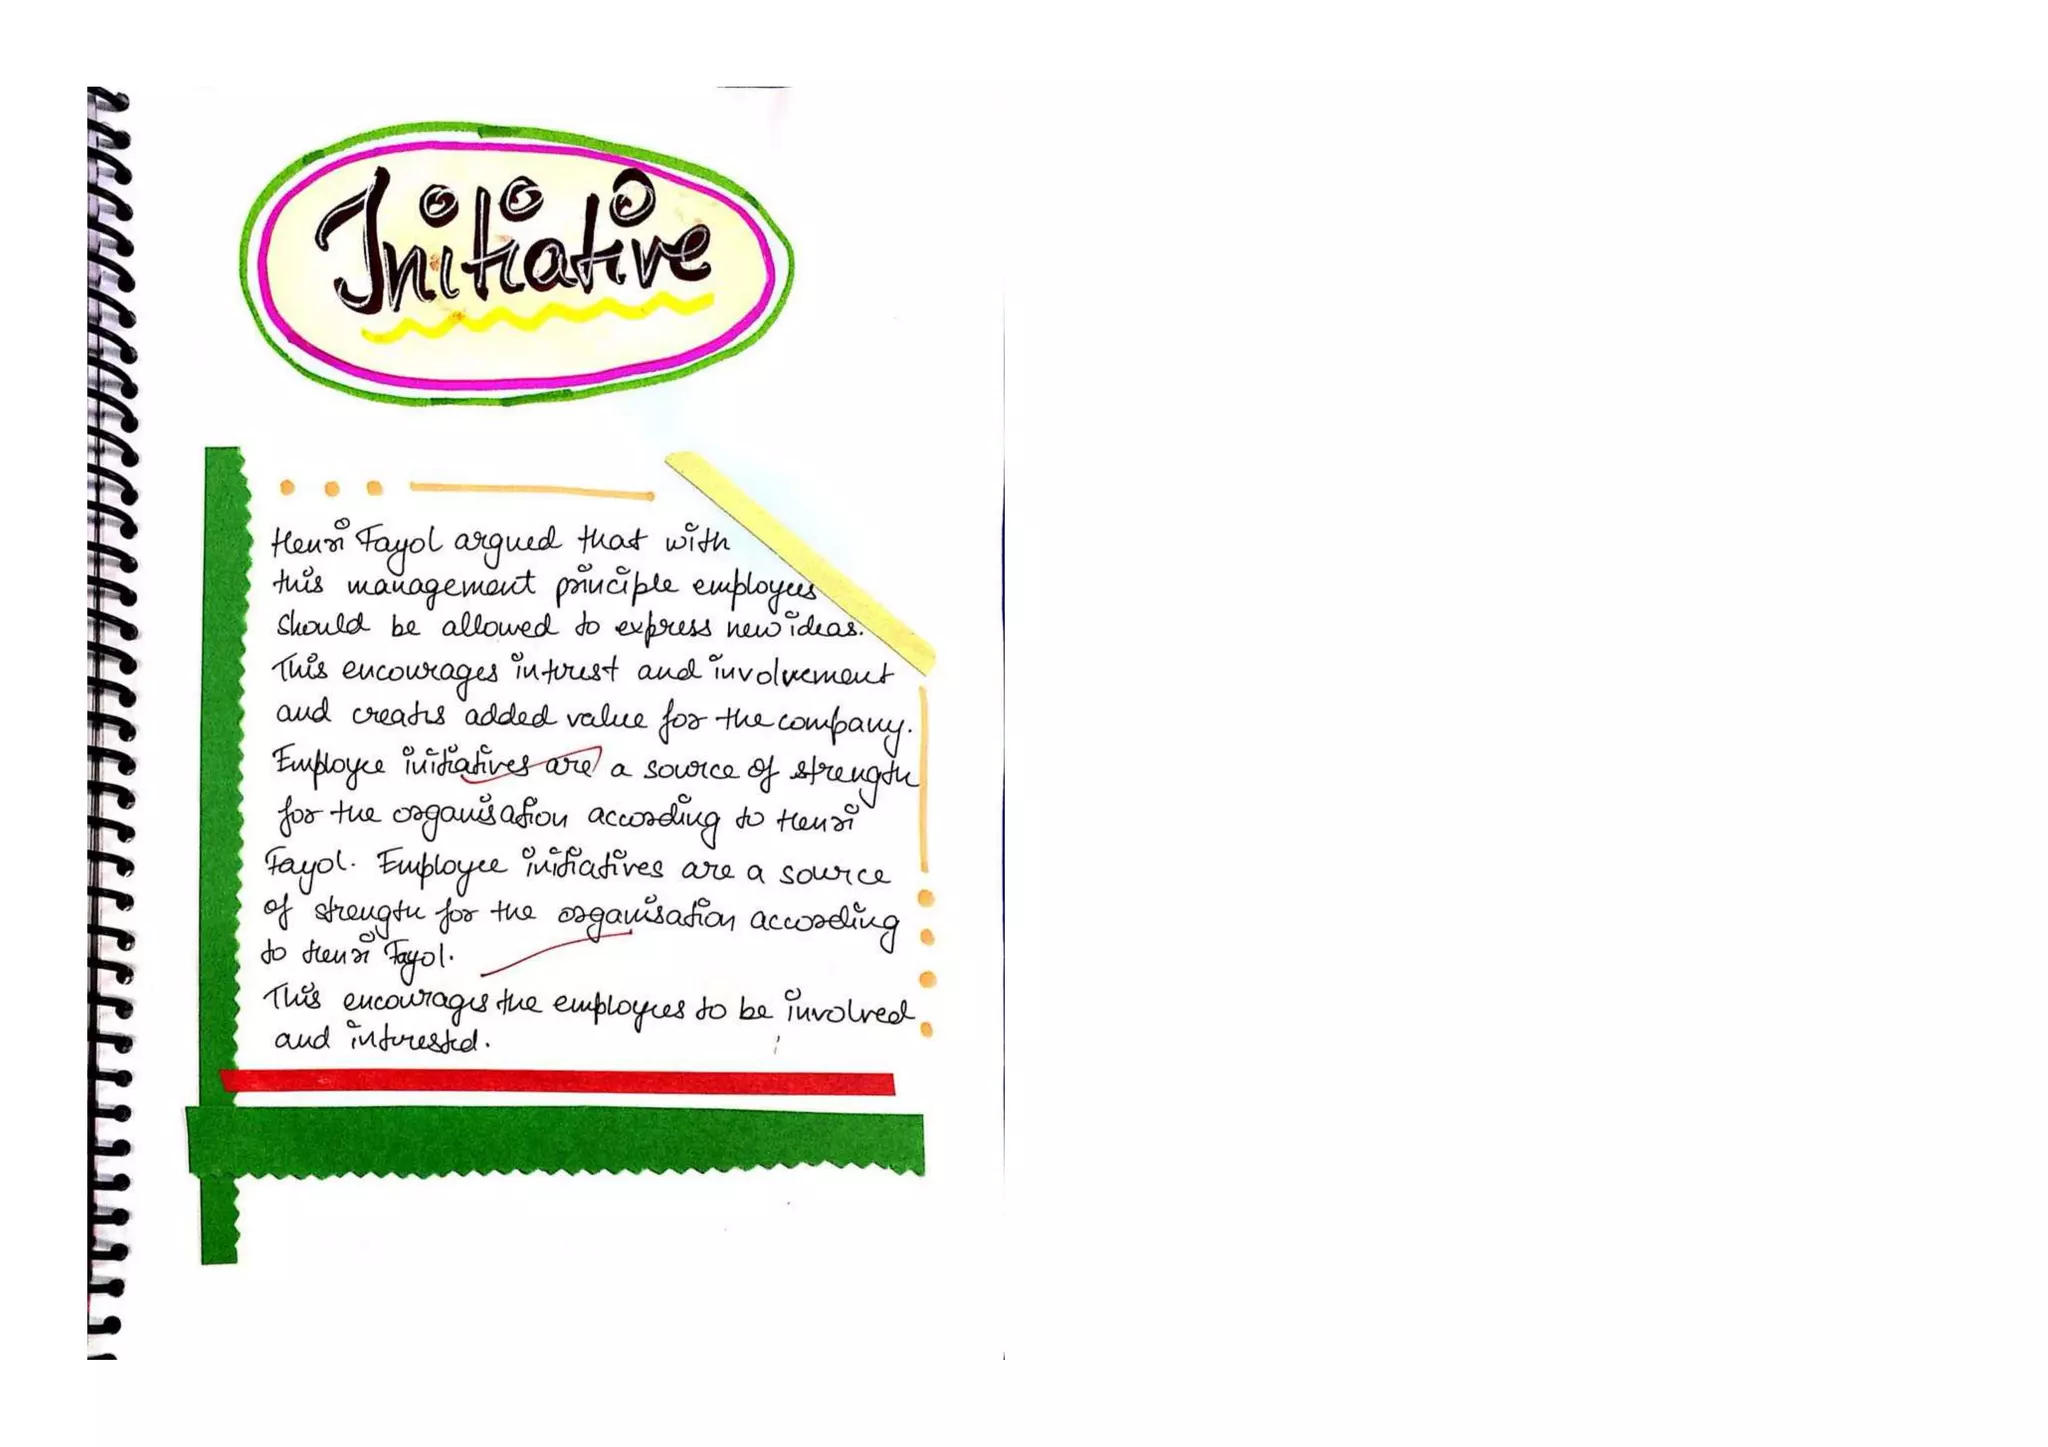 Initiative
Henri Fayol argued that with
this management principle employees
should be allowed to express new ideas.
This encourages intrest and involvement
and creates added value for the company.
Employee initiatives are a source of strength
for the organisation according to Henri
Fayol. Employee initiatives are a source
of strength for the organisation according
to Henri Fayol.
This encourages the employees to be involved
and intrested.